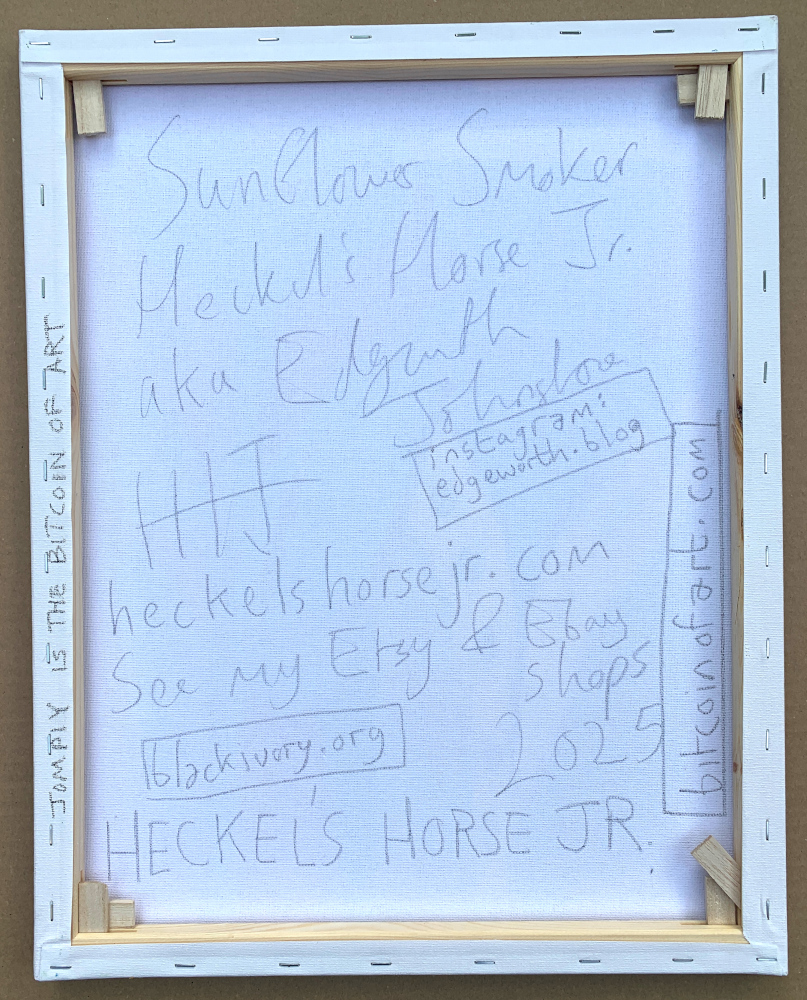 Sunflower Smoker
Heckel's Horse Jr.
aka Edgeworth
Johnstone
instagram:
edgeworth.blog
HHJ
heckelshorsejr.com
See my Etsy & Ebay
shops
2025
blackivory.org
HECKEL'S HORSE JR.
bitcoinofart.com
IS THE BITCOIN OF ART